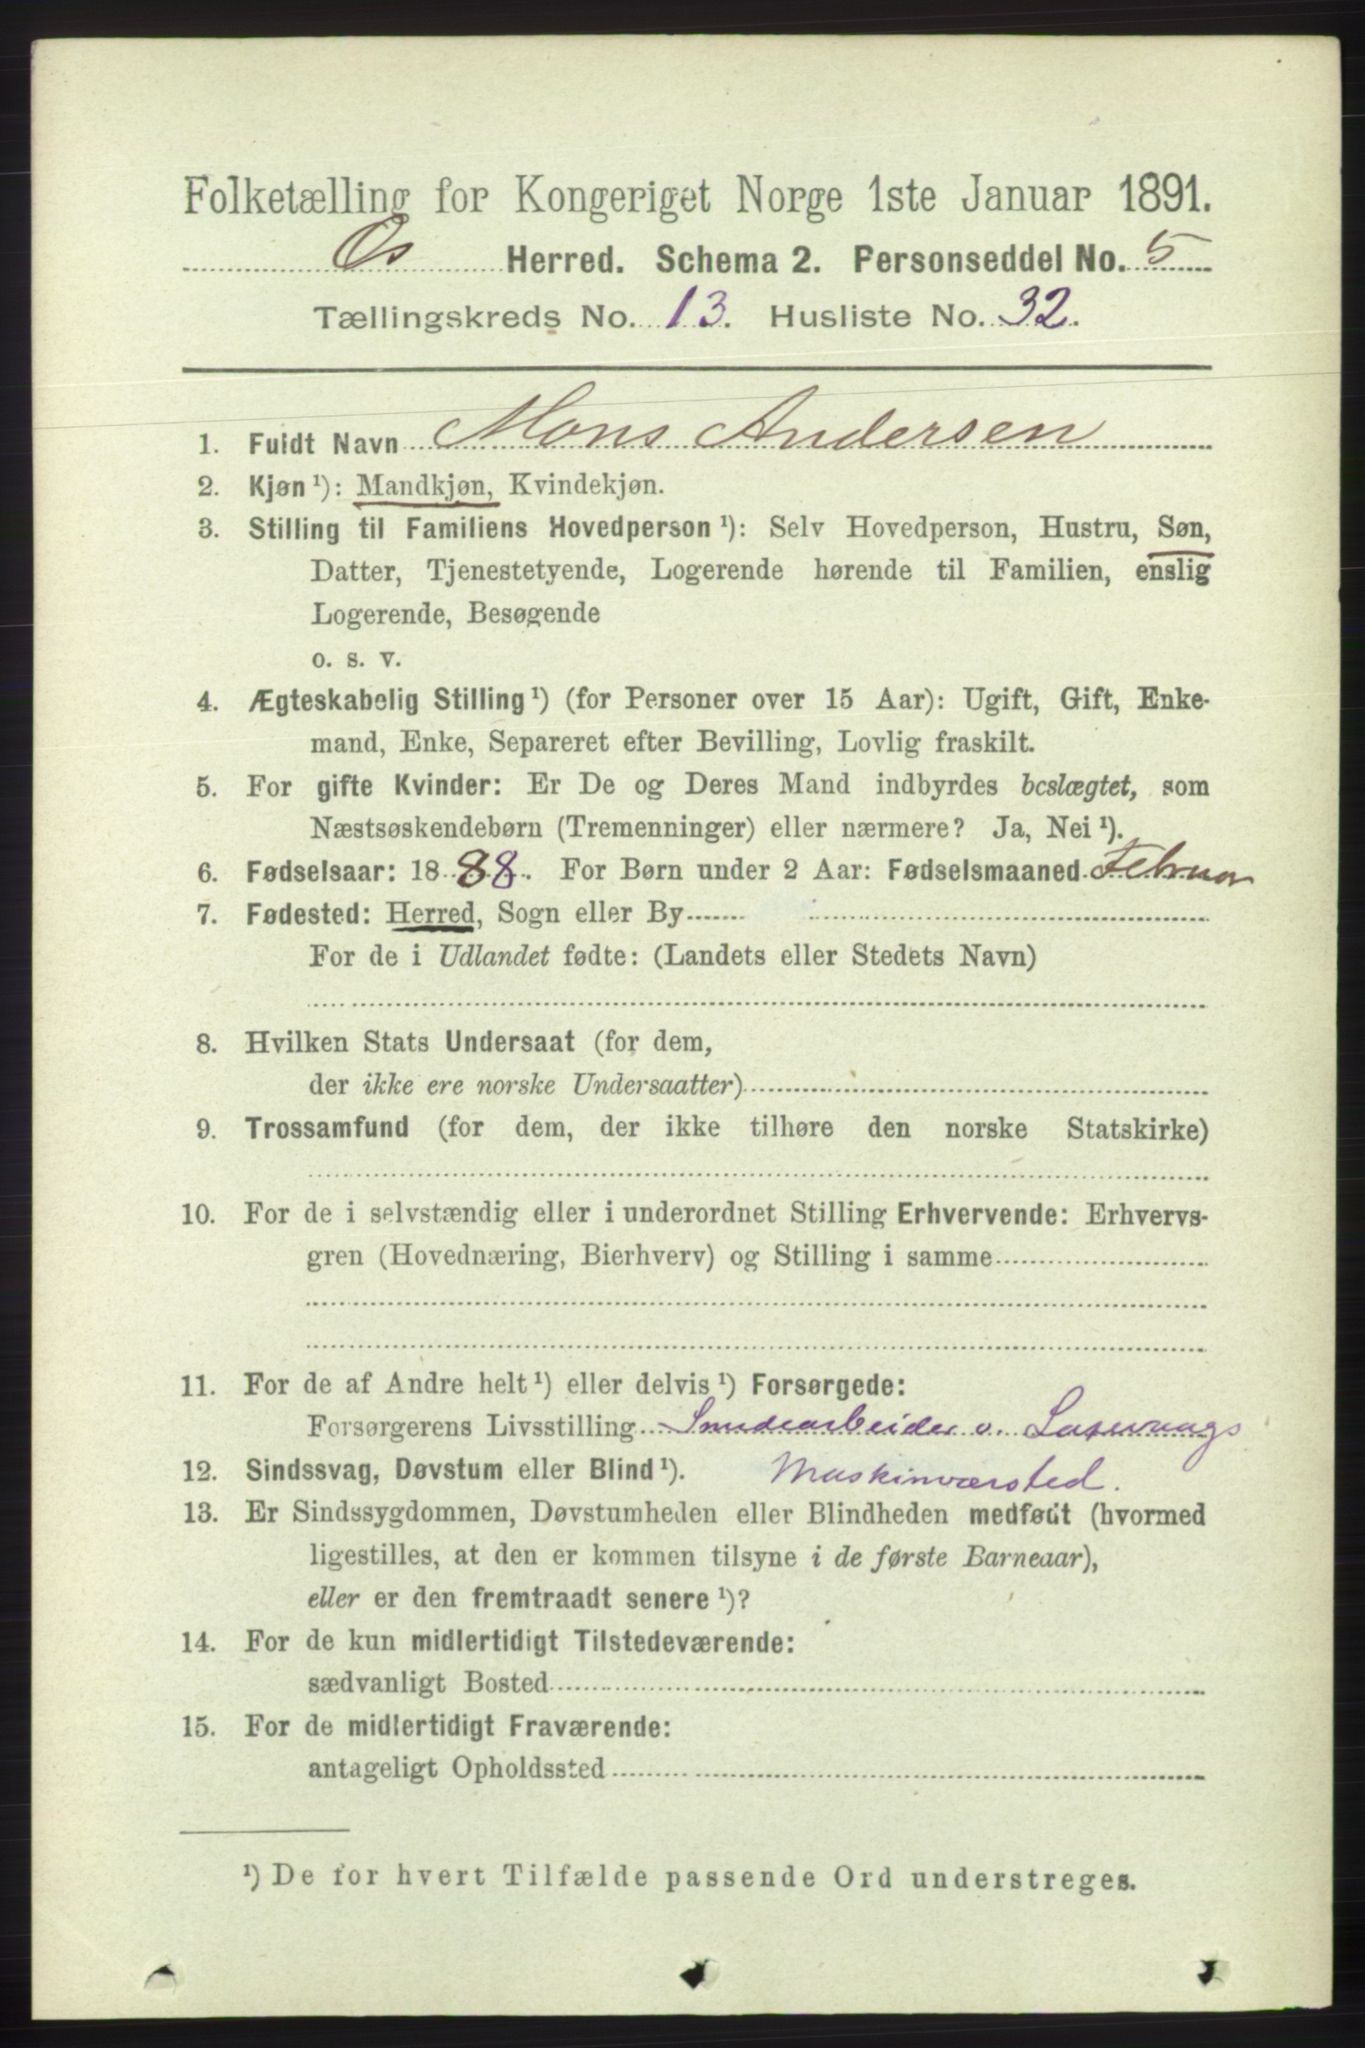 Folketælling for Kongeriget Norge 1ste Januar 1891.
Os Herred. Schema 2. Personseddel No. 5
Tællingskreds No. 13. Husliste No. 32.
1. Fuldt Navn Mons Andersen
2. Kjøn ¹): Mandkjøn, Kvindekjøn.
3. Stilling til Familiens Hovedperson ¹): Selv Hovedperson, Hustru, Søn,
Datter, Tjenestetyende, Logerende hørende til Familien, enslig
Logerende, Besøgende
o. s. v.
4. Ægteskabelig Stilling ¹) (for Personer over 15 Aar): Ugift, Gift, Enke-
mand, Enke, Separeret efter Bevilling, Lovlig fraskilt.
5. For gifte Kvinder: Er De og Deres Mand indbyrdes beslægtet, som
Næstsøskendebørn (Tremenninger) eller nærmere? Ja, Nei ¹).
6. Fødselsaar: 1888. For Børn under 2 Aar: Fødselsmaaned Februar
7. Fødested: Herred, Sogn eller By
For de i Udlandet fødte: (Landets eller Stedets Navn)
8. Hvilken Stats Undersaat (for dem,
der ikke ere norske Undersaatter)
9. Trossamfund (for dem, der ikke tilhøre den norske Statskirke)
10. For de i selvstændig eller i underordnet Stilling Erhvervende: Erhvervs-
gren (Hovednæring, Bierhverv) og Stilling i samme
11. For de af Andre helt ¹) eller delvis ¹) Forsørgede:
Forsørgerens Livsstilling Smedearbeider v. Laxevaags
12. Sindssvag, Døvstum eller Blind ¹). Maskinværsted.
13. Er Sindssygdommen, Døvstumheden eller Blindheden medfødt (hvormed
ligestilles, at den er kommen tilsyne i de første Barneaar),
eller er den fremtraadt senere ¹)?
14. For de kun midlertidigt Tilstedeværende:
sædvanligt Bosted
15. For de midlertidigt Fraværende:
antageligt Opholdssted
¹) De for hvert Tilfælde passende Ord understreges.